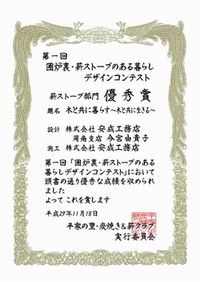 第一回
囲炉裏・薪ストーブのある暮らし
デザインコンテスト
薪ストーブ部門 優秀賞
題名 木と共に暮らす〜木と共に生きる〜
設計 株式会社 安成工務店
周南支店 今宮由貴子
施工 株式会社 安成工務店
第一回「囲炉裏・薪ストーブのある
暮らしデザインコンテスト」において
頭書の通り優秀な成績を収められ
ました
よって これを賞します
平成29年11月18日
平家の里・炭焼き&薪クラブ
実行委員会